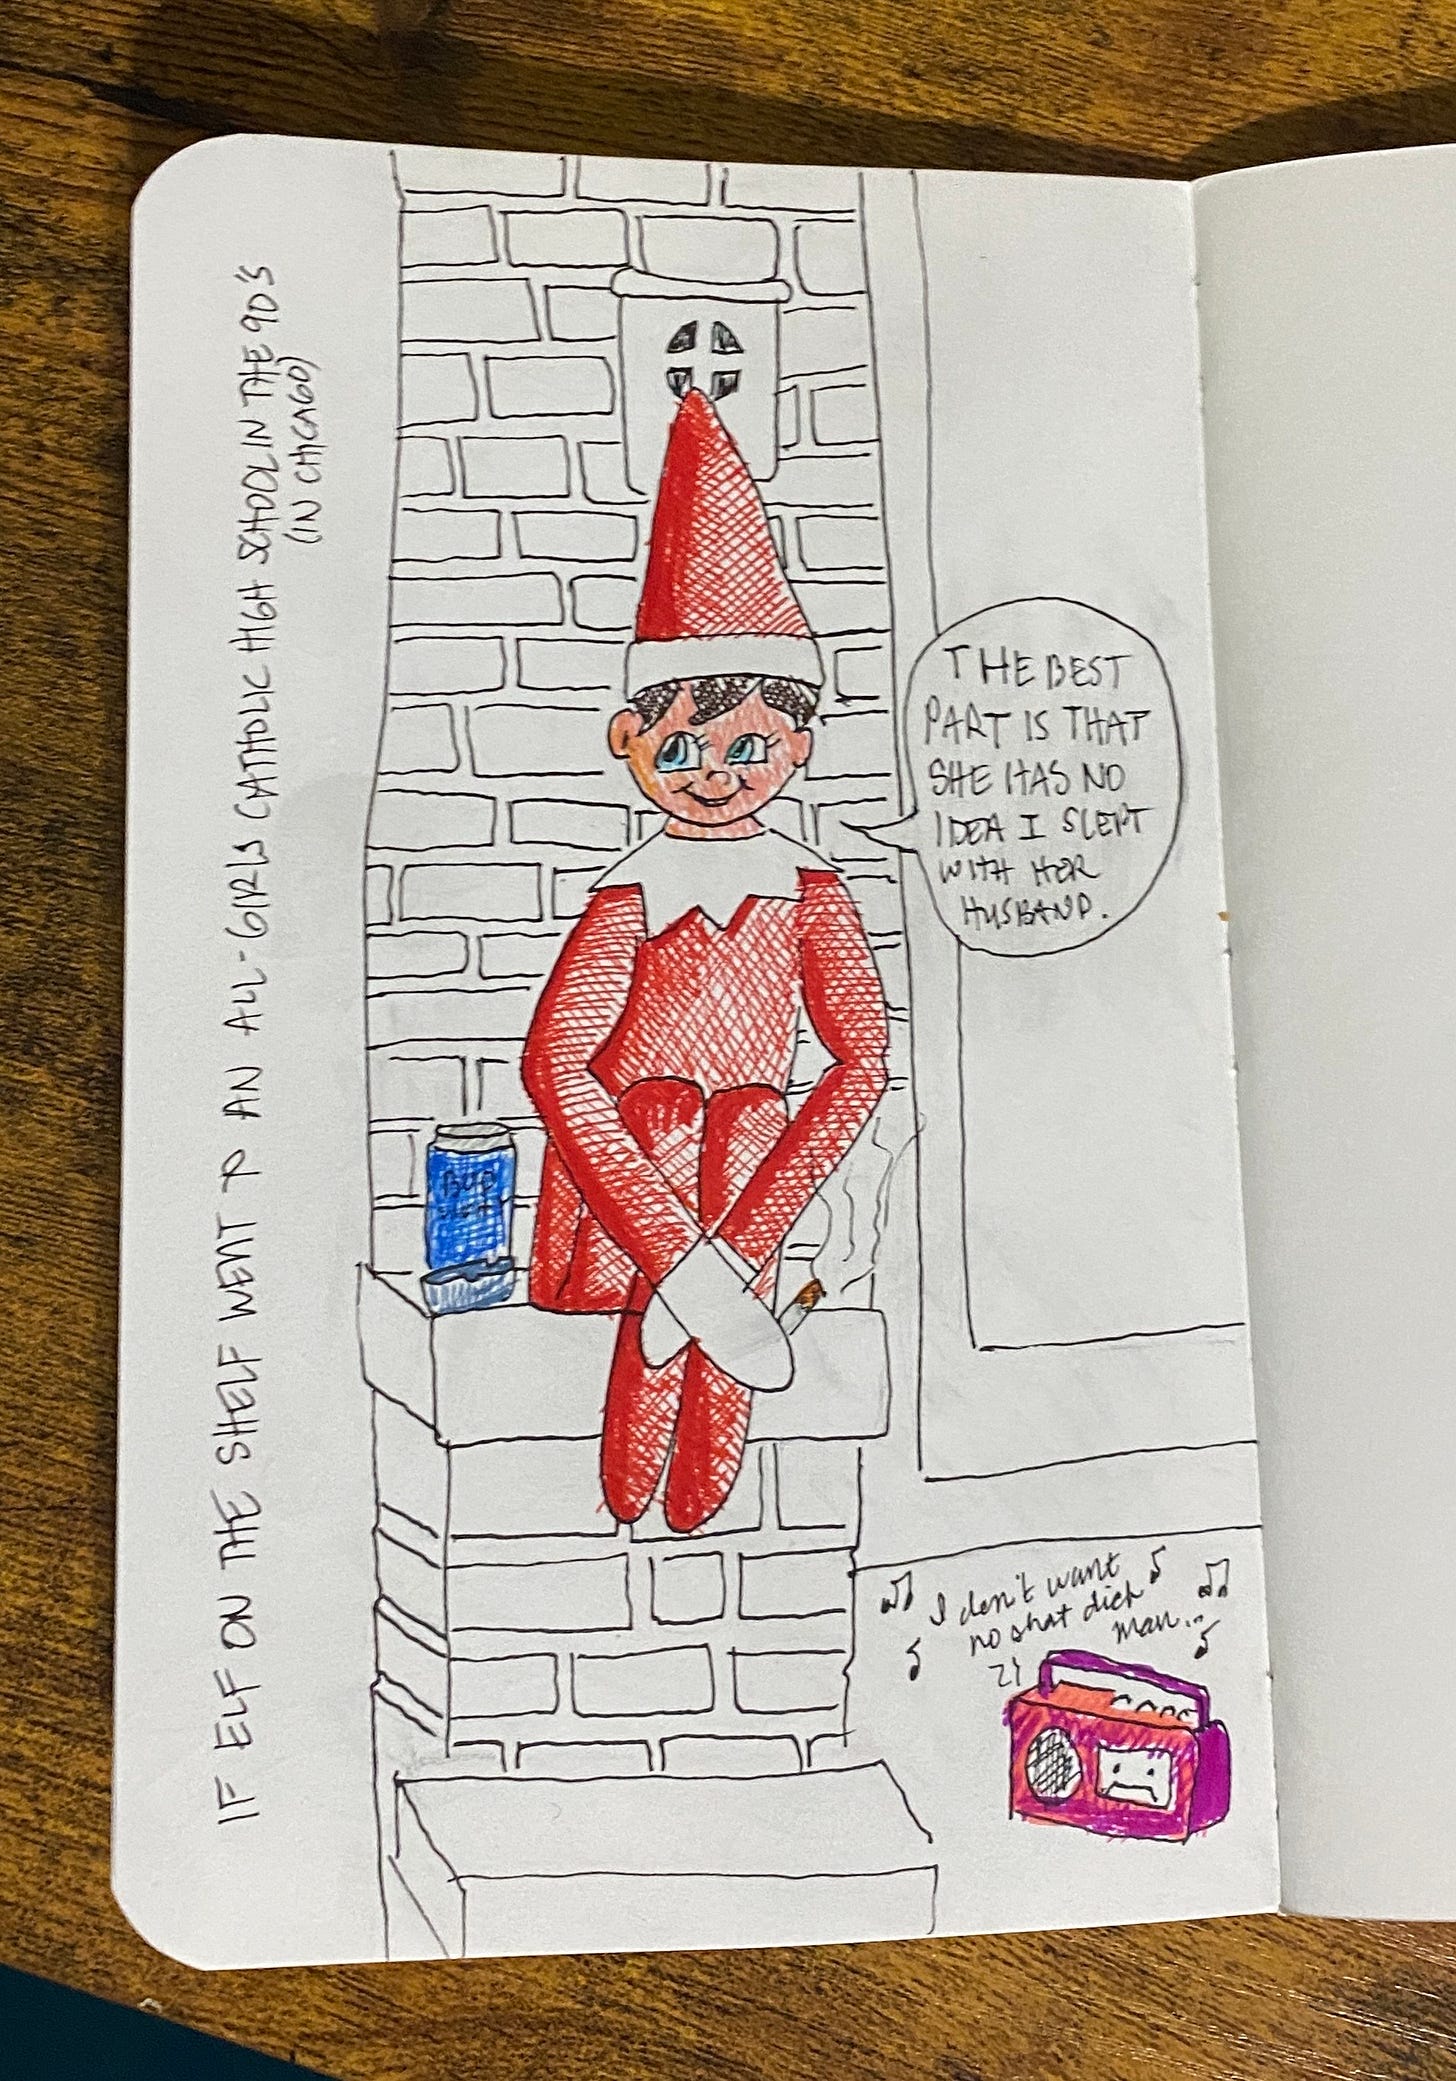 IF ELF ON THE SHELF WENT TO AN ALL-GIRLS CATHOLIC HIGH SCHOOL IN THE 90'S
(IN CHICAGO)
THE BEST
PART IS THAT
SHE HAS NO
IDEA I SLEPT
WITH HER
HUSBAND.
BUD
LIGHT
I don't want
no short dick
man...